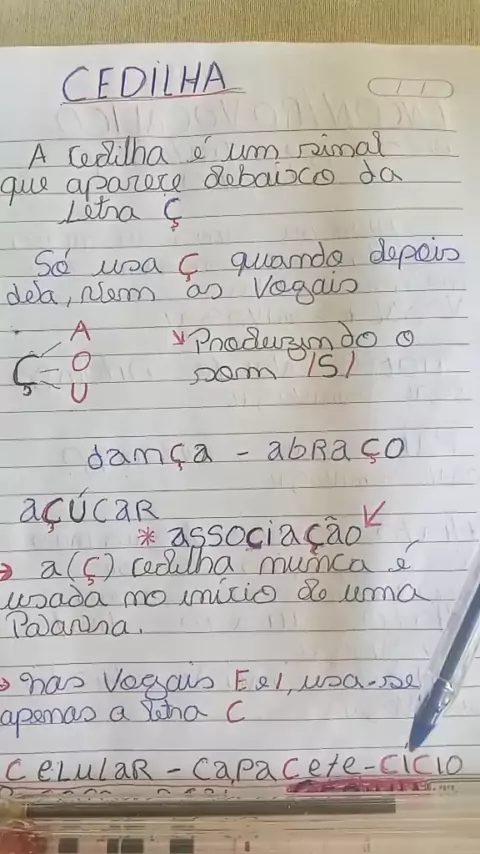 CEDILHA
A cedilha é um sinal
que aparece debaixo da
Letra Ç
Só usa Ç quando depois
dela, vem as Vogais
Ç A O U
Produzindo o
som /S/
dança - abraço
açúcar
* associação
→ a (ç) cedilha nunca é
usada no início de uma
Palavra.
→ nas Vogais E e I, usa-se
apenas a letra C
celular - capacete - cício